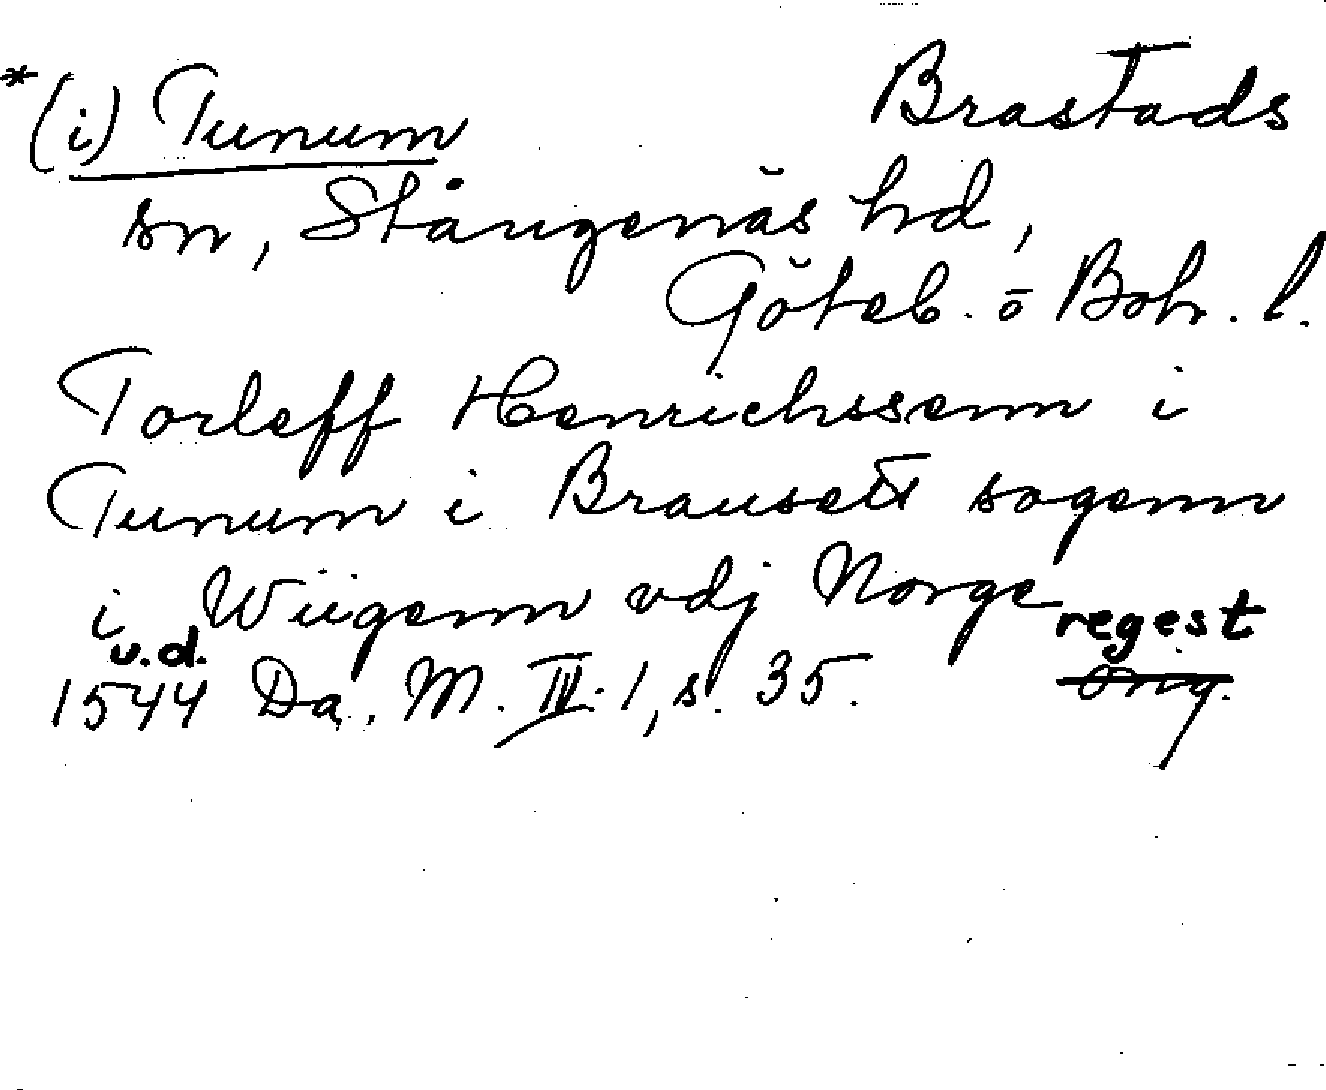 *(i) Tunum Brastads
sn, Stångenäs hd,
Göteb. o Boh. l.
Torleff Henrichssenn i
Tunum i Brausett sogenn
i Wiigenn vdj Norge
u.d. regest
1544 Da. M. IV: 1, s. 35. Orig.